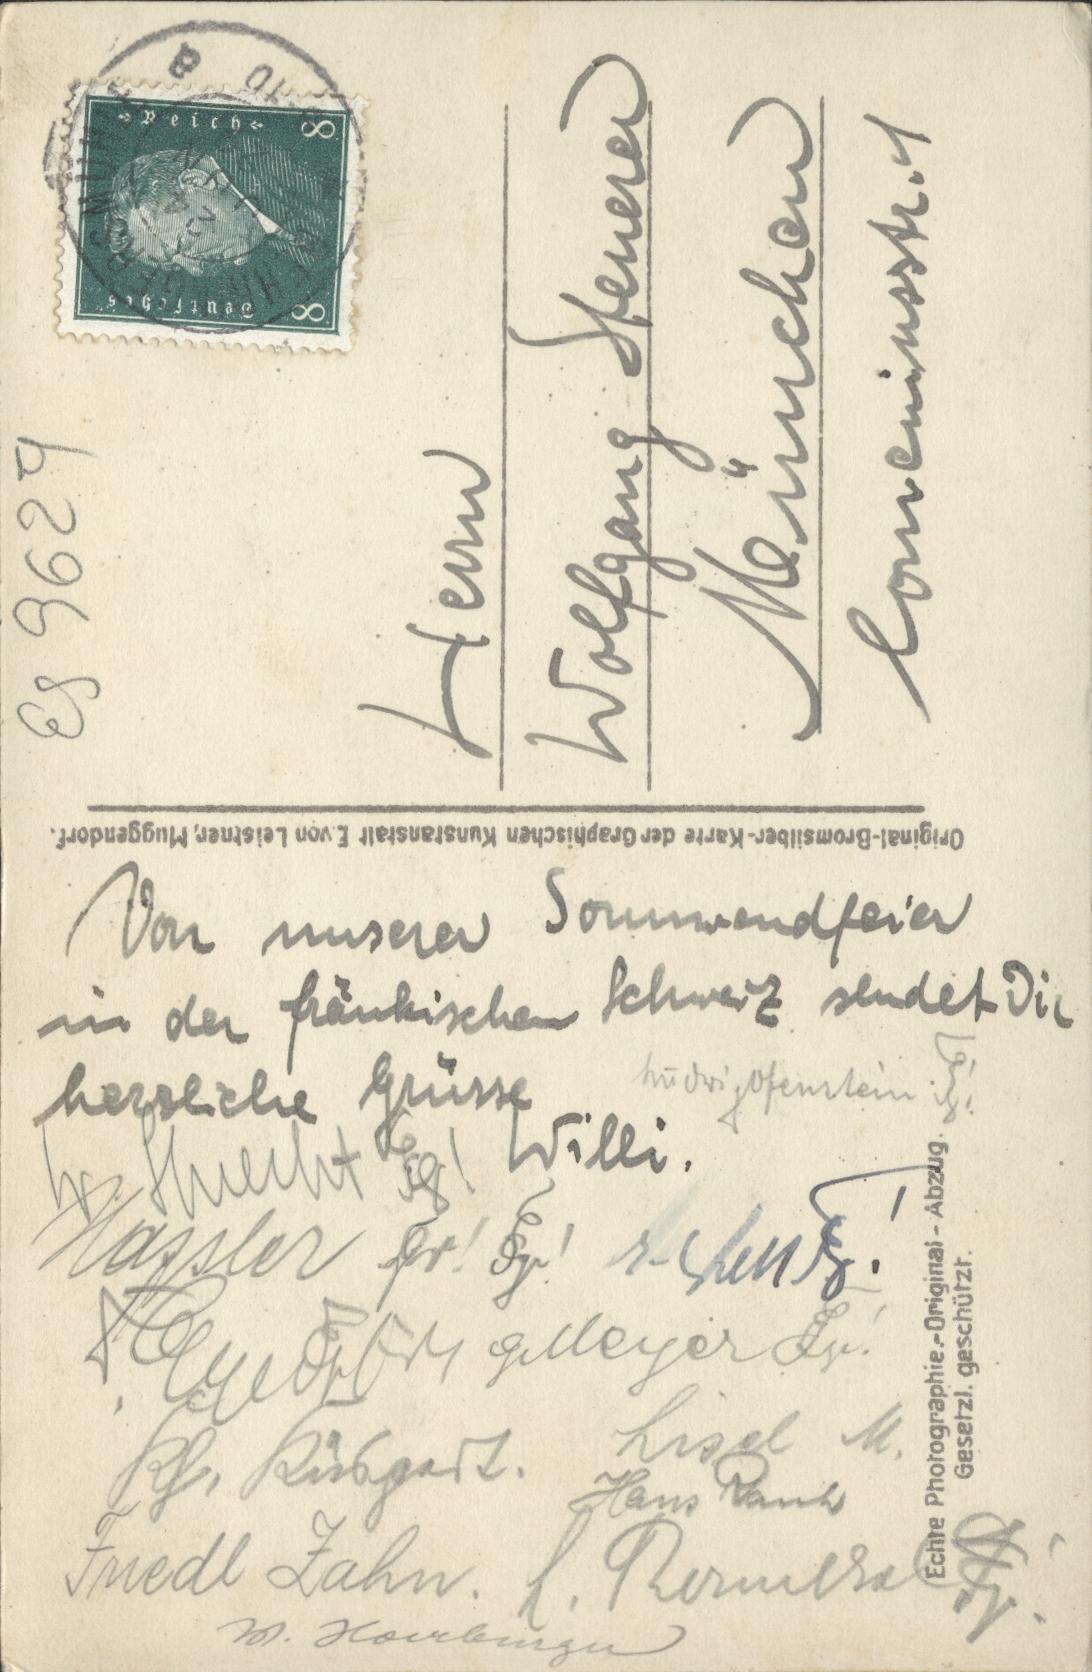 8 Reich
Deutsches 8
Es 9629
Herrn
Wolfgang Steurer
München
Comeniusstr. 4
Original-Bromsilber-Karte der Graphischen Kunstanstalt E. von Leistner, Muggendorf.
Von unserer Sonnwendfeier
in der fränkischen Schweiz sendet Dir
herzliche Grüsse
Ludwig Ofenstein
Willi.
Hassler
G. Meyer
Lisel M.
Hans Rauh
Friedl Zahn.
Echte Photographie.-Original-Abzug.
Gesetzl. geschützt.